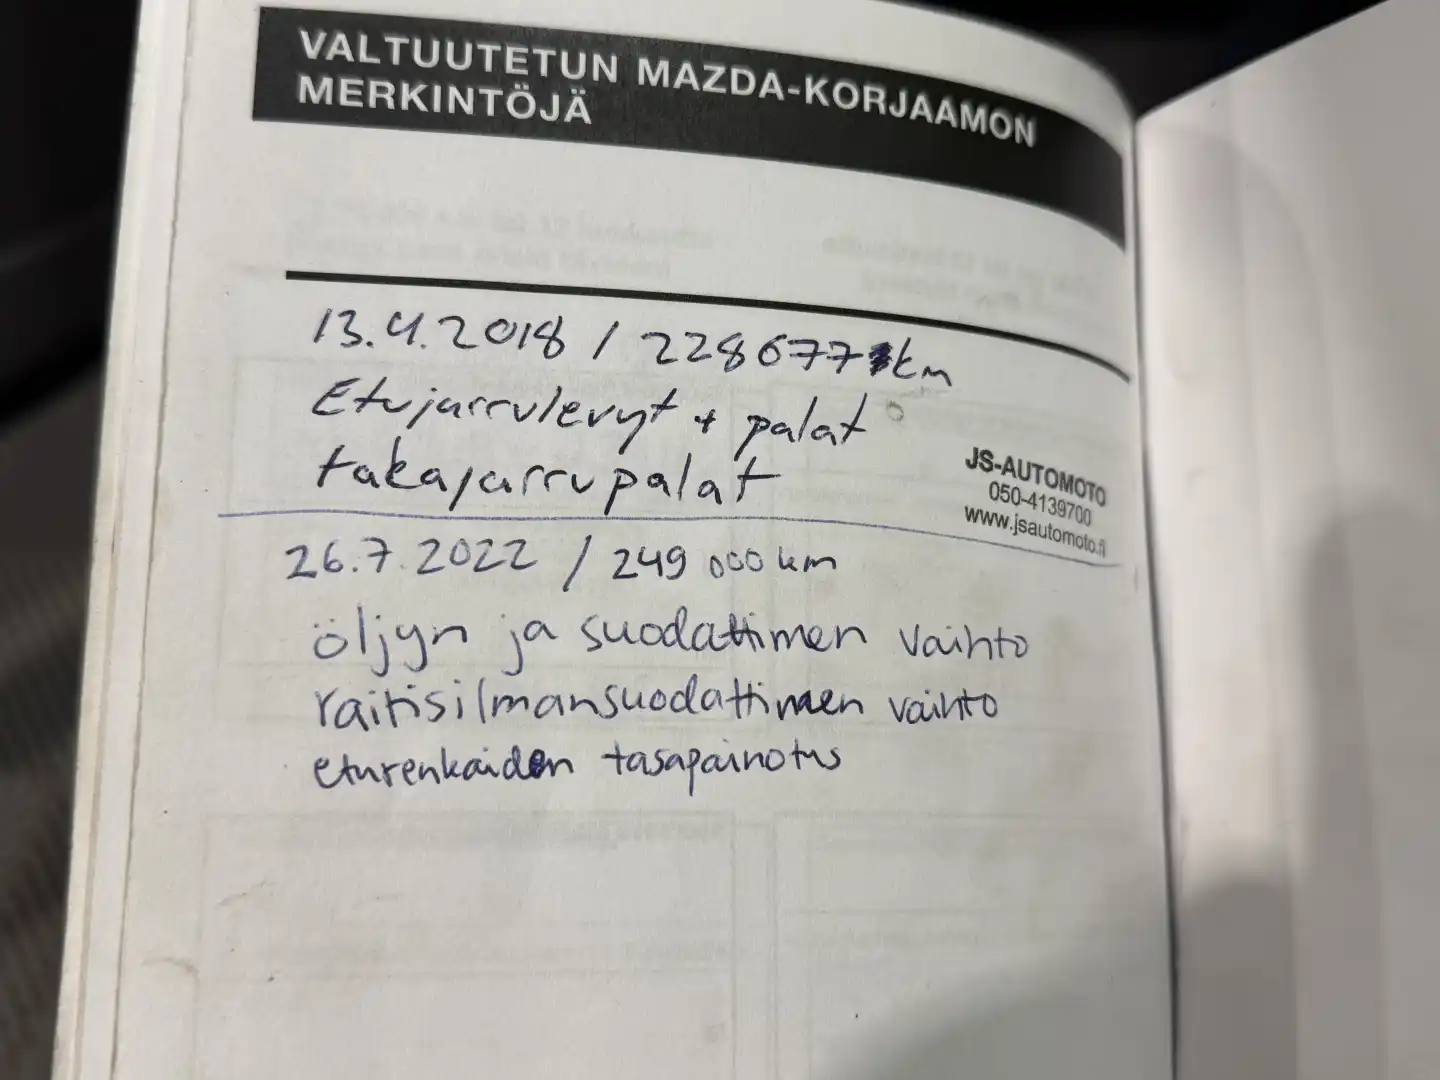 VALTUUTETUN MAZDA-KORJAAMON
MERKINTÖJÄ
13.4.2018 / 228677 km
Etujarrulevyt + palat
takajarrupalat
JS-AUTOMOTO
050-4139700
www.jsautomoto.fi
26.7.2022 / 249 000 km
öljyn ja suodattimen vaihto
raitisilmansuodattimen vaihto
eturenkaiden tasapainotus